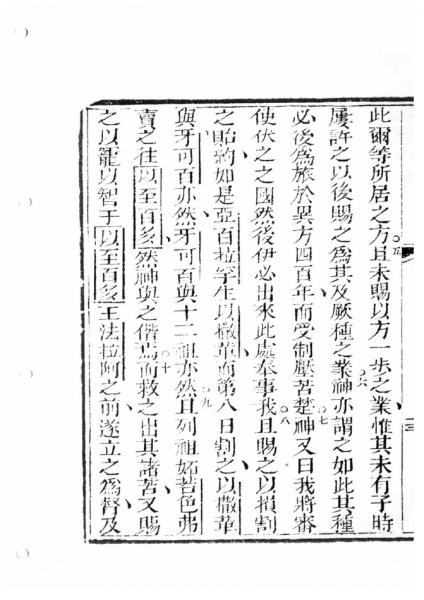 此爾等所居之方○五且未賜以方一步之業惟其未有子時
屢許之以後賜之為其及厥種之業○六神亦謂之如此其種
必後為旅於異方四百年而受制壓苦楚○七神又曰我將審
使伏之之國然後伊必出來此處奉事我○八且賜之以損割
之貽約如是亞百拉罕生以撒革而第八日割之以撒革
與牙可百亦然牙可百與十二祖亦然○九且列祖妬若色弗
賣之往以至百多然神與之偕焉○十而救之出其諸苦又賜
之以寵以智于以至百多王法拉阿之前遂立之為督及